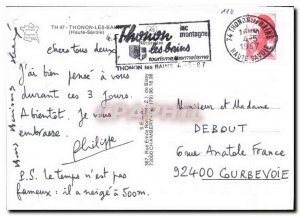 TH 47 - THONON-LES-BAINS
(Haute-Savoie)
chers tous deux
J'ai bien pensé à vous
durant ces 3 jours.
A bientôt. Je vous
embrasse.
Philippe
P.S. le temps n'est pas
fameux : il a neigé à 500m.
Thonon
les bains
lac
montagne
tourisme thermalisme
THONON les BAINS
74 THONON LES BAINS
1987
HAUTE SAVOIE
Monsieur et Madame
DEBOUT
6 rue Anatole France
92400 COURBEVOIE